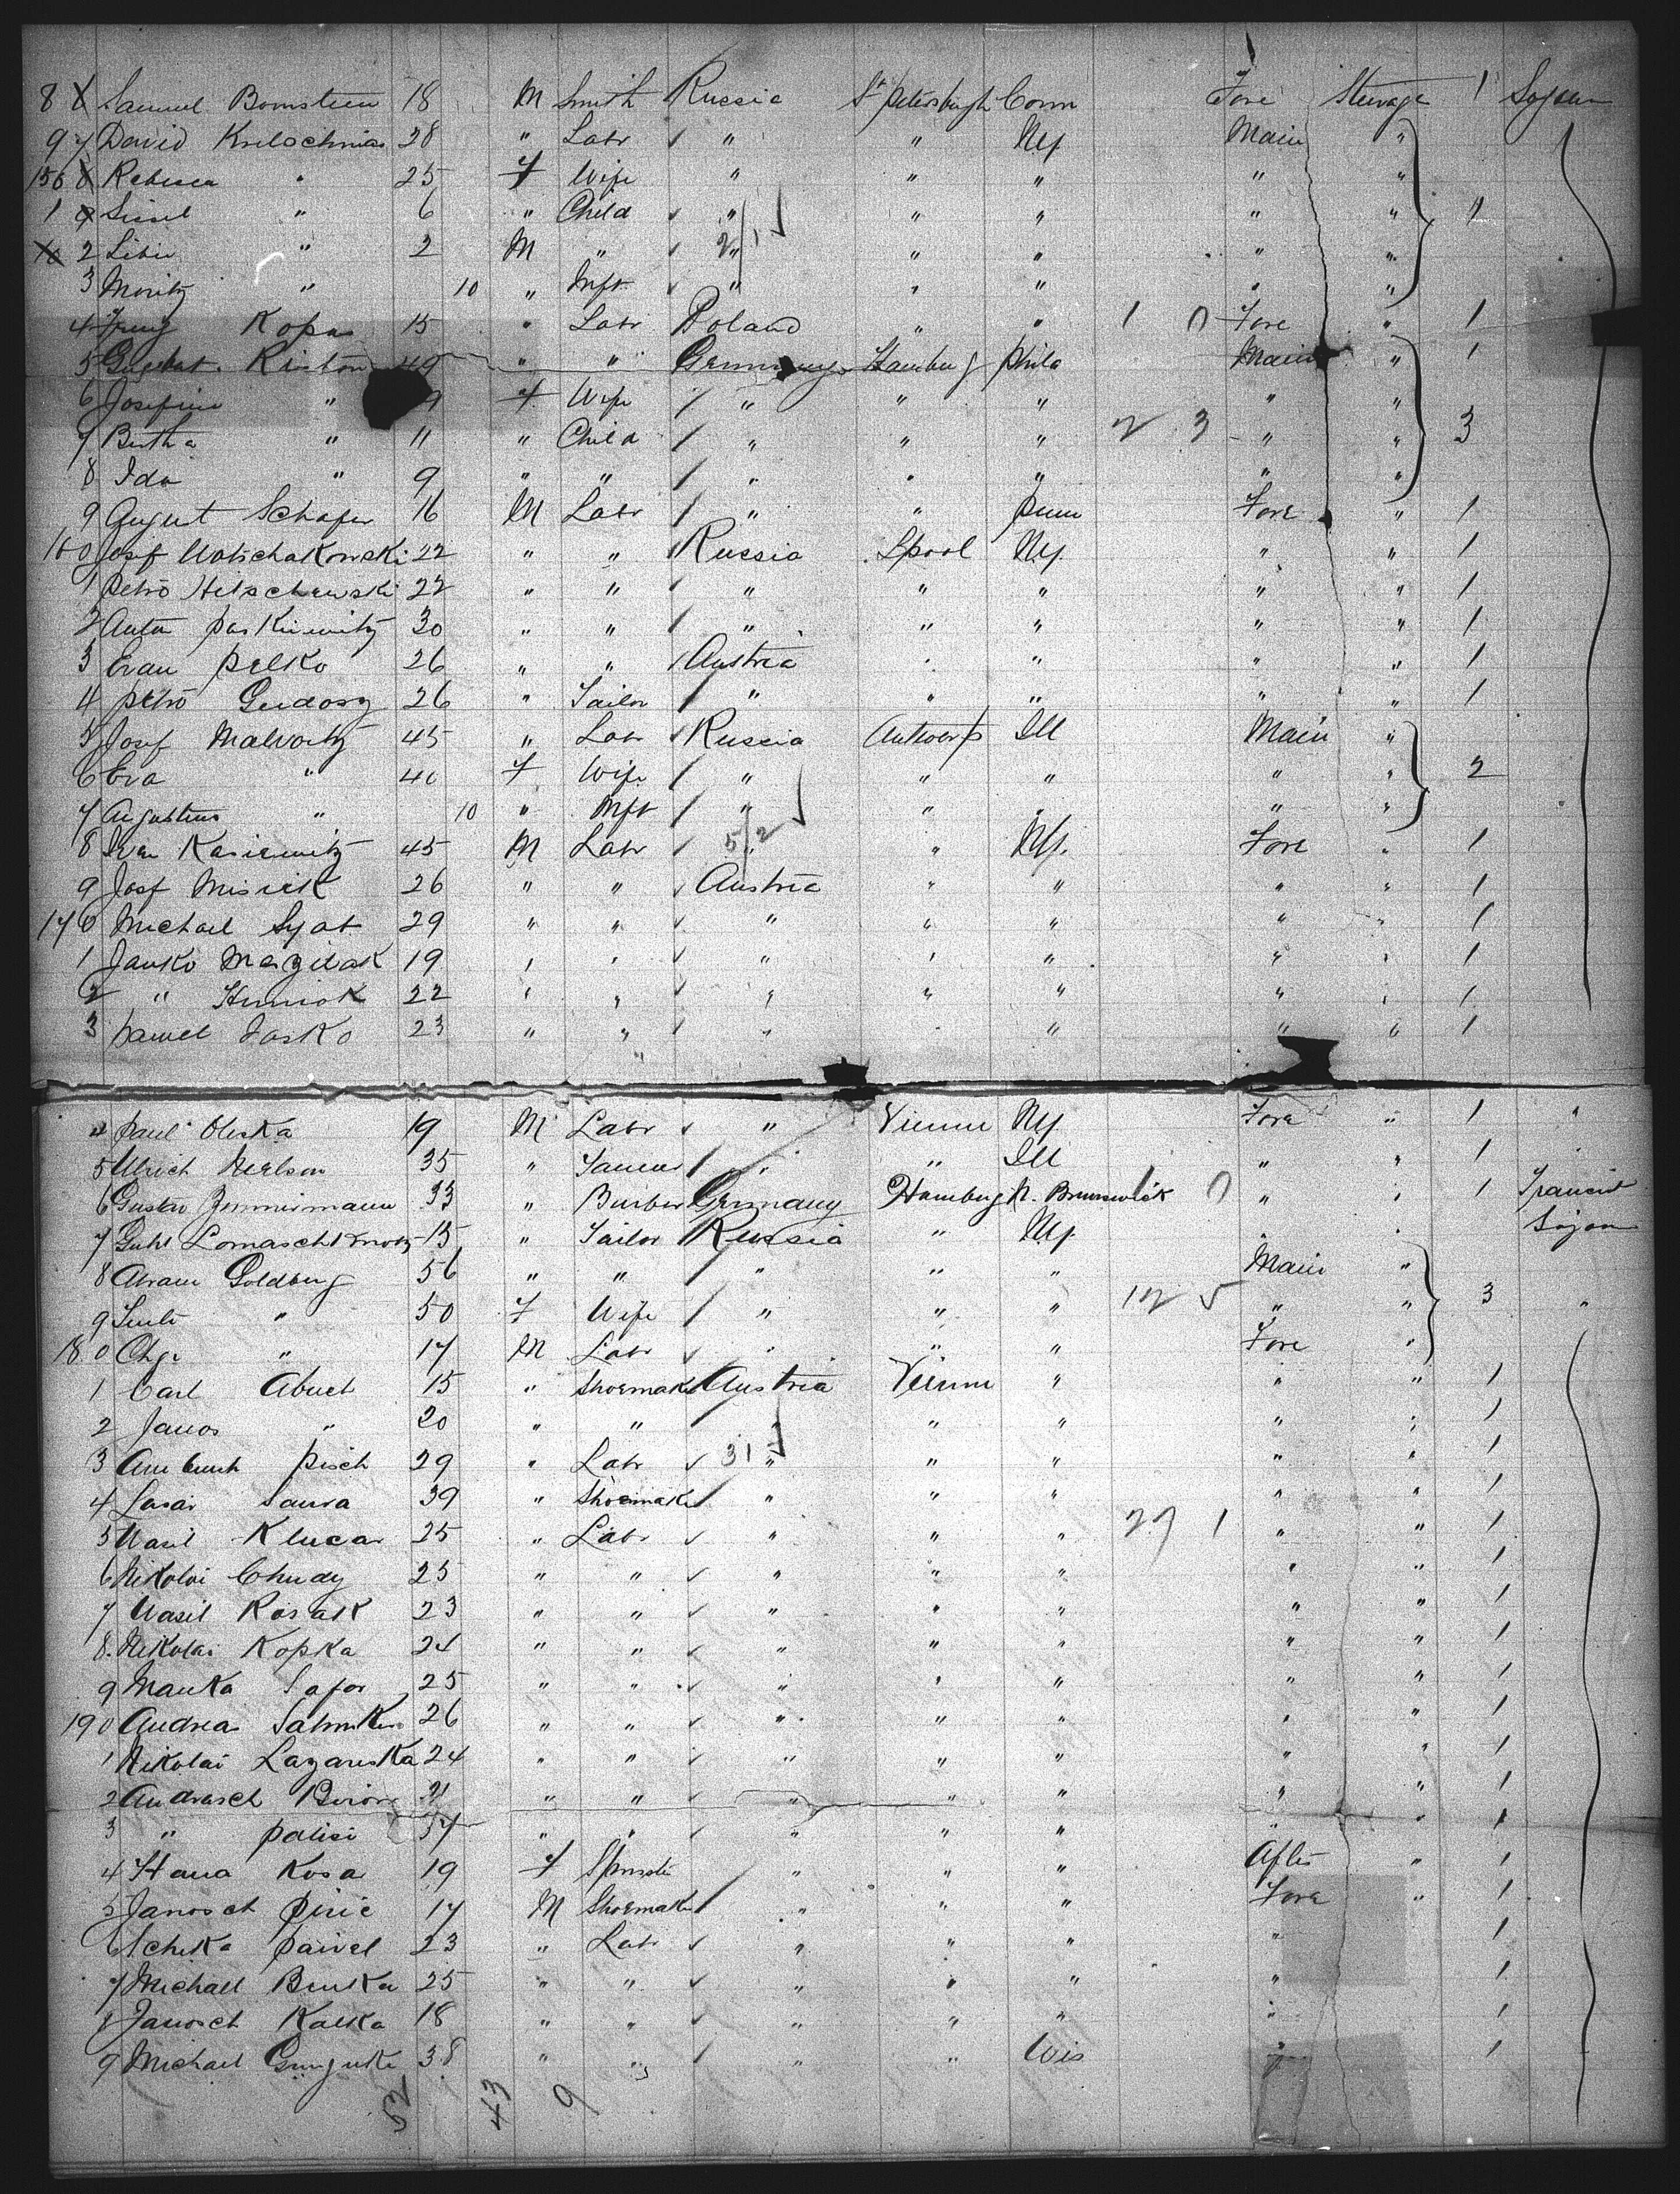 8 Samuel Bornstein 18 M Smith Russia St Petersburgh Conn Fore Steerage 1 Sojourn
9 David 28 " Labr " " NY Main "
156 Rebecca " 25 F Wife " " " " "
1 " 6 " Child " " " " " 1
2 Libie " 2 M " " " " " "
3 Moritz " 10 " Inft " " " " "
4 Kopas 15 " Labr Poland " " 1 0 Fore " 1
5 Riston 49 " " Germany Hamburg Phila Main " 1
6 Josefine " 9 F Wife " " " " "
7 Bertha " 11 " Child " " " 2 3 " " 3
8 Ida " 9 " " " " " " "
9 August Schafer 16 M Labr " " Penn Fore " 1
160 Josf 22 " " Russia Lpool NY " " 1
1 Petro Hitschewski 22 " " " " " " " 1
2 Anton Paskiewitz 30 " " " " " " " 1
3 Evan Pelko 26 " " Austria " " " " 1
4 Petro Gudosz 26 " Tailor " " " " " 1
5 Josf 45 " Labr Russia Antwerp Ill Main "
6 Eva " 40 F Wife " " " " " 2
7 Agustus " 10 " Inft " " " " "
8 Ivan Kasiewitz 45 M Labr 5/2 " " NY Fore " 1
9 Josf Misick 26 " " Austria " " " " 1
170 Michael Syat 29 " " " " " " " 1
1 Janko 19 " " " " " " " 1
2 " 22 " " " " " " " 1
3 Pawel Jasko 23 " " " " " " " 1
4 Paul Oleska 19 M Labr " Vienna NY Fore " 1 "
5 Ulrich Nielson 35 " " " Ill " " 1
6 Gustav Zimmermann 33 " Barber Germany Hamburg N. Brunswick 1 0 " " 1 Transient
7 15 " Tailor Russia " NY " " Sojourn
8 Abram Goldberg 56 " " " " " Main "
9 " 50 F Wife " " " 12 5 " " 3 "
180 " 17 M Labr " " " Fore "
1 Carl Abuch 15 " Shoemaker Austria Vienna " " " 1
2 Janos " 20 " " " " " " " 1
3 Pisch 29 " Labr 31 " " " " " 1
4 Lasar Saura 39 " Shoemaker " " " " " 1
5 Wasil Klucar 25 " Labr " " " 27 1 " " 1
6 Nikolai Chudy 25 " " " " " " " 1
7 Wasil Kosak 23 " " " " " " " 1
8 Nikolai Kopka 24 " " " " " " " 1
9 Manka Safor 25 " " " " " " " 1
190 Andrea 26 " " " " " " " 1
1 Nikolai Lazariska 24 " " " " " " " 1
2 Andrasch 21 " " " " " " " 1
3 " Palisi 37 " " " " " " " 1
4 Hana Kosa 19 F Spinster " " " After " 1
5 Janosch Piric 17 M Shoemaker " " " Fore " 1
6 Schika Pawel 23 " Labr " " " " 1
7 Michael Benka 25 " " " " " " 1
8 Janosch Kalka 18 " " " " " " 1
9 Michael 38 " " " " Wis " 1
52 43 9